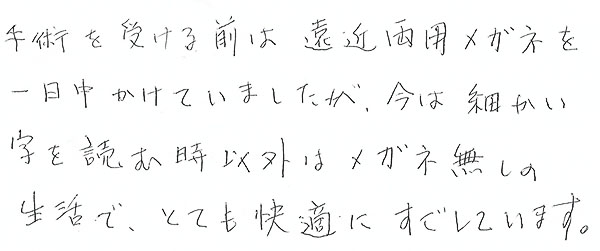 手術を受ける前は遠近両用メガネを
一日中かけていましたが、今は細かい
字を読む時以外はメガネ無しの
生活で、とても快適にすごしています。